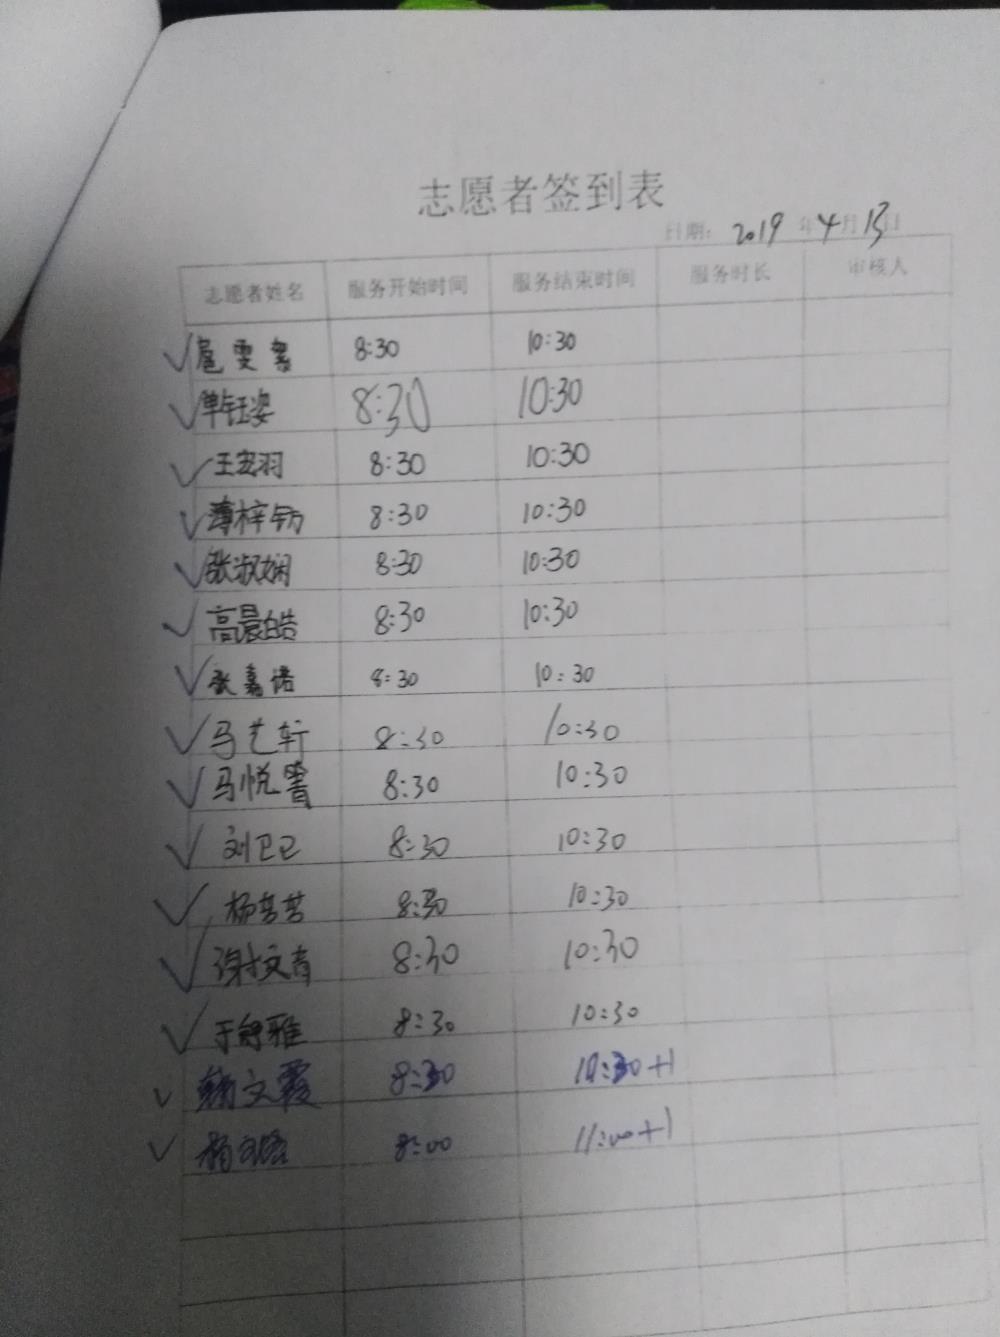 志愿者签到表
日期: 2019 年 4 月 13 日
志愿者姓名 服务开始时间 服务结束时间 服务时长 审核人
扈雯 8:30 10:30
单钰姿 8:30 10:30
王宏羽 8:30 10:30
薄梓钫 8:30 10:30
张淑娴 8:30 10:30
高晨皓 8:30 10:30
张嘉诺 8:30 10:30
马艺轩 8:30 10:30
马悦 8:30 10:30
刘卫卫 8:30 10:30
杨芳芳 8:30 10:30
谢文青 8:30 10:30
于舒雅 8:30 10:30
文霞 8:30 :30+1
杨 8:00 11:00+1